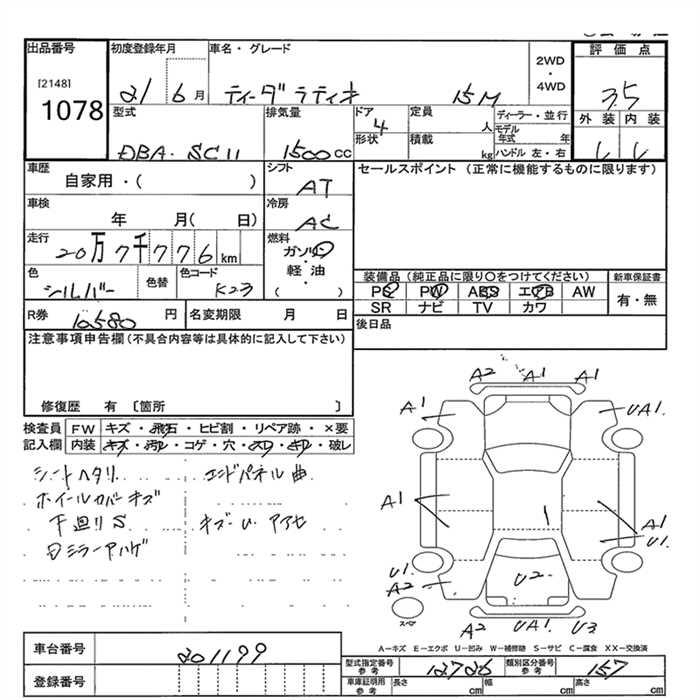 出品番号 初度登録年月 車名・グレード 2WD ・ 4WD 評価点
[2148]
1078 21 6月 ティーダ ラティオ 15M 3.5
型式 排気量 ドア 定員 人 ディーラー・並行 外装 内装
DBA・SC11 1500cc 4 形状 積載 kg モデル年式 年 ハンドル 左・右
車歴 自家用・( ) シフト AT セールスポイント (正常に機能するものに限ります)
車検 年 月( 日) 冷房 AC
走行 20万7千776km 燃料 ガソリン・軽・油 ( )
色 シルバー 色替 色コード K23 装備品(純正品に限り〇をつけてください) 新車保証書
PS PW ABS エアB AW 有・無
SR ナビ TV カワ
R券 円 名変期限 月 日 後日品
注意事項申告欄(不具合内容等は具体的に記入して下さい)
修復歴 有 〔箇所 〕
検査員 FW キズ・飛石・ヒビ割・リペア跡・×要
記入欄 内装 キズ・汚レ・コゲ・穴・スレ・キレ・破レ
シートヘタリ エンドパネル曲
ホイールカバーキズ
下廻りS キズ・U アアセ
ミラーアハゲ
A2 A1 A1
A1 UA1
A1 1 A1
U1
U1 U2
A2
スペア A2 UA1 U3
A-キズ E-エクボ U-凹み W-補修跡 S-サビ C-腐食 XX-交換済
車台番号 201199
型式指定番号 参考 類別区分番号 参考 157
登録番号 車庫証明用 参考 長さ cm 幅 cm 高さ cm